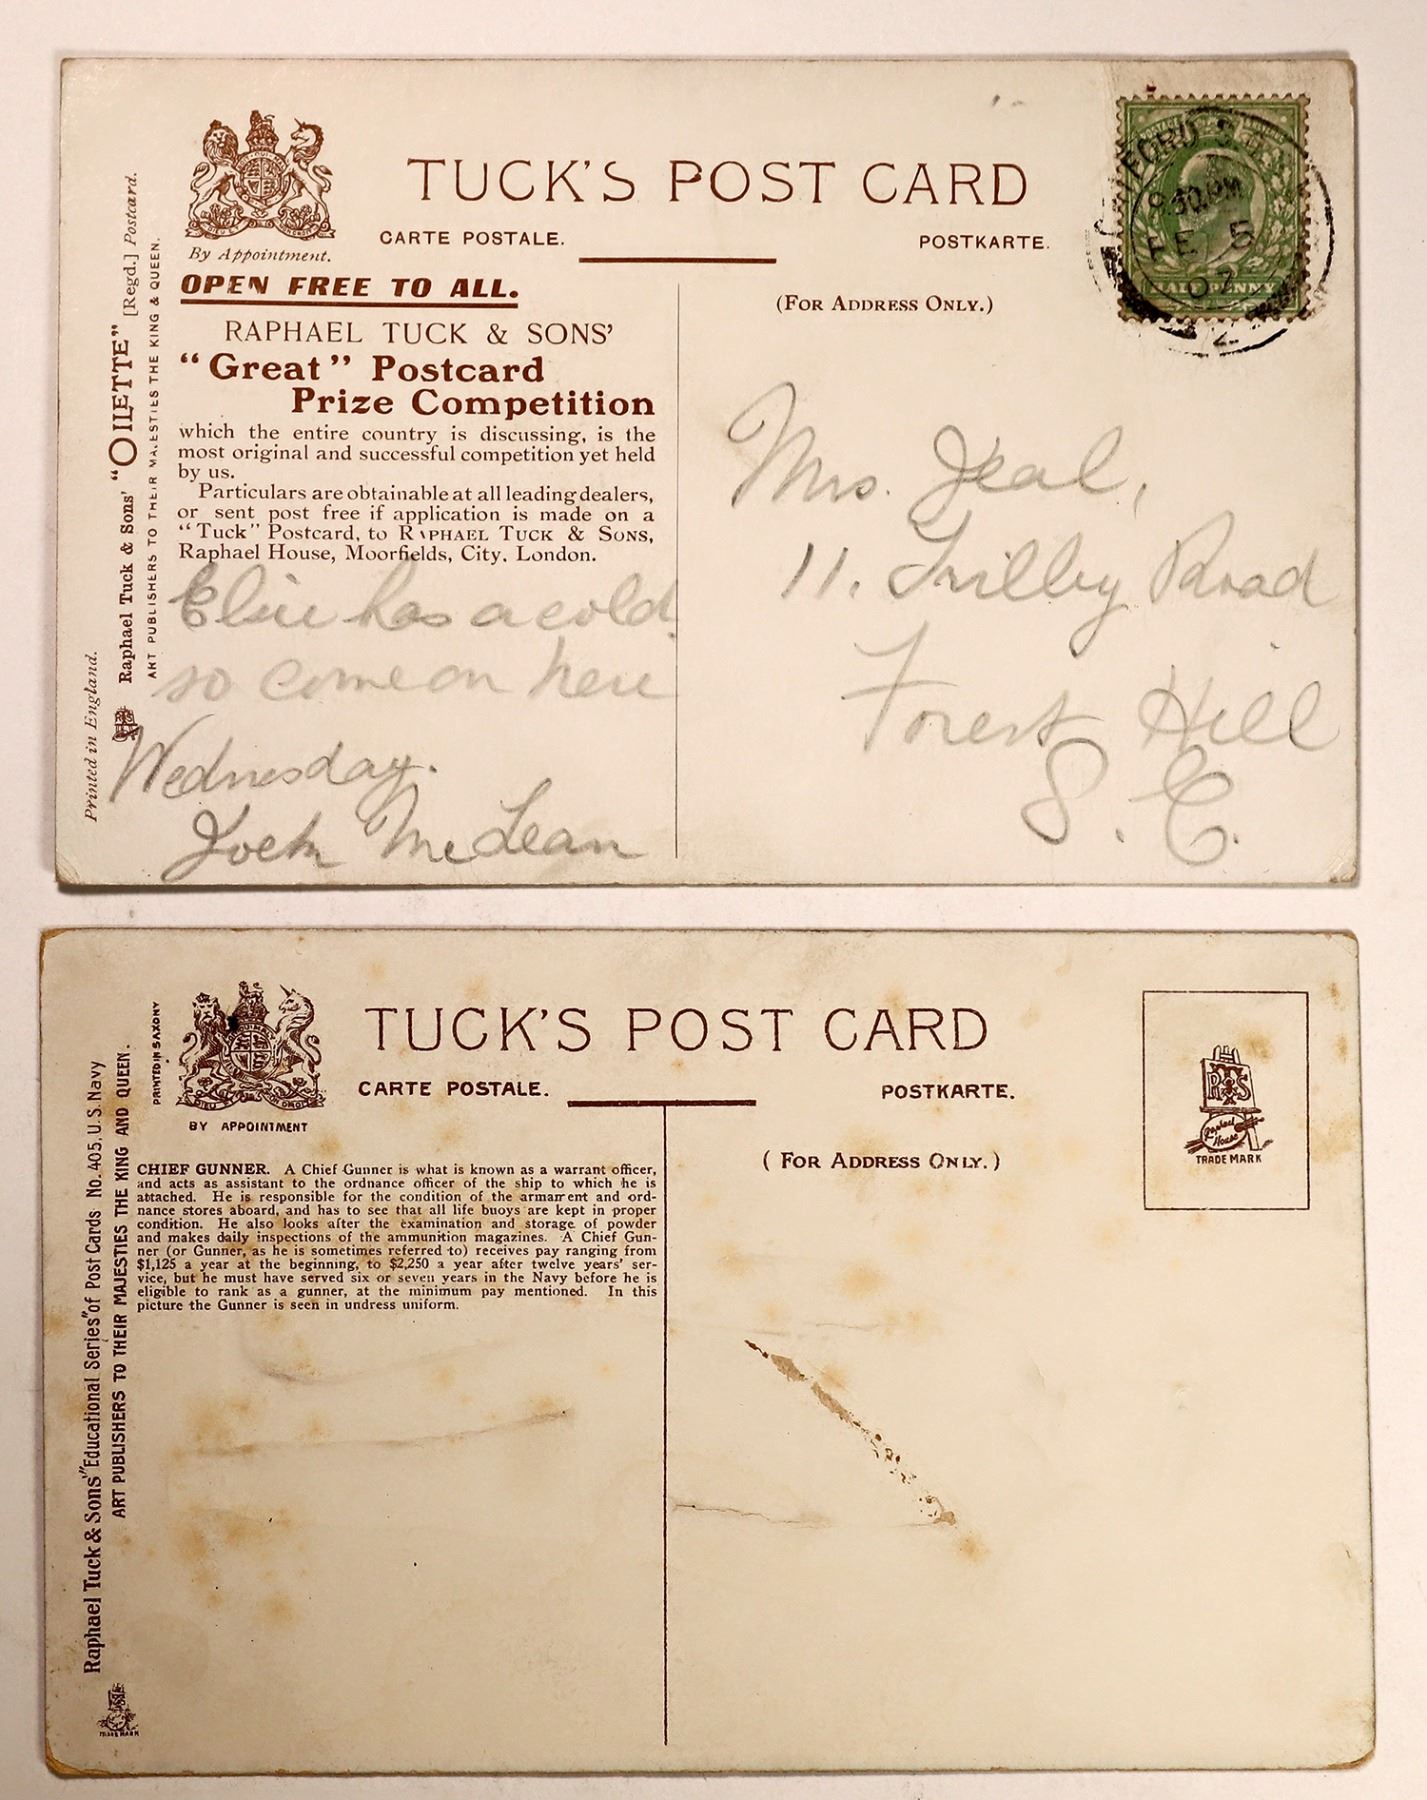 TUCK'S POST CARD
CARTE POSTALE.
POSTKARTE.
By Appointment.
OPEN FREE TO ALL.
RAPHAEL TUCK & SONS'
"Great" Postcard
Prize Competition
which the entire country is discussing, is the
most original and successful competition yet held
by us.
Particulars are obtainable at all leading dealers,
or sent post free if application is made on a
"Tuck" Postcard, to RAPHAEL TUCK & SONS,
Raphael House, Moorfields, City, London.
Elsie has a cold
so come on here
Wednesday.
McLean
Printed in England.
Raphael Tuck & Sons' "OILETTE" [Regd.] Postcard.
ART PUBLISHERS TO THEIR MAJESTIES THE KING & QUEEN.
(FOR ADDRESS ONLY.)
HALF PENNY
9.30 PM
FE 5
07
2
Mrs. Jeal,
11. Trilby Road
Forest Hill
S.E.
TUCK'S POST CARD
CARTE POSTALE.
POSTKARTE.
PRINTED IN SAXONY
BY APPOINTMENT
CHIEF GUNNER. A Chief Gunner is what is known as a warrant officer,
and acts as assistant to the ordnance officer of the ship to which he is
attached. He is responsible for the condition of the armament and ord-
nance stores aboard, and has to see that all life buoys are kept in proper
condition. He also looks after the examination and storage of powder
and makes daily inspections of the ammunition magazines. A Chief Gun-
ner (or Gunner, as he is sometimes referred to) receives pay ranging from
$1,125 a year at the beginning, to $2,250 a year after twelve years' ser-
vice, but he must have served six or seven years in the Navy before he is
eligible to rank as a gunner, at the minimum pay mentioned. In this
picture the Gunner is seen in undress uniform.
Raphael Tuck & Sons' "Educational Series" of Post Cards No. 405, U.S. Navy
ART PUBLISHERS TO THEIR MAJESTIES THE KING AND QUEEN.
TRADE MARK
(FOR ADDRESS ONLY.)
R T S
Raphael
House
TRADE MARK